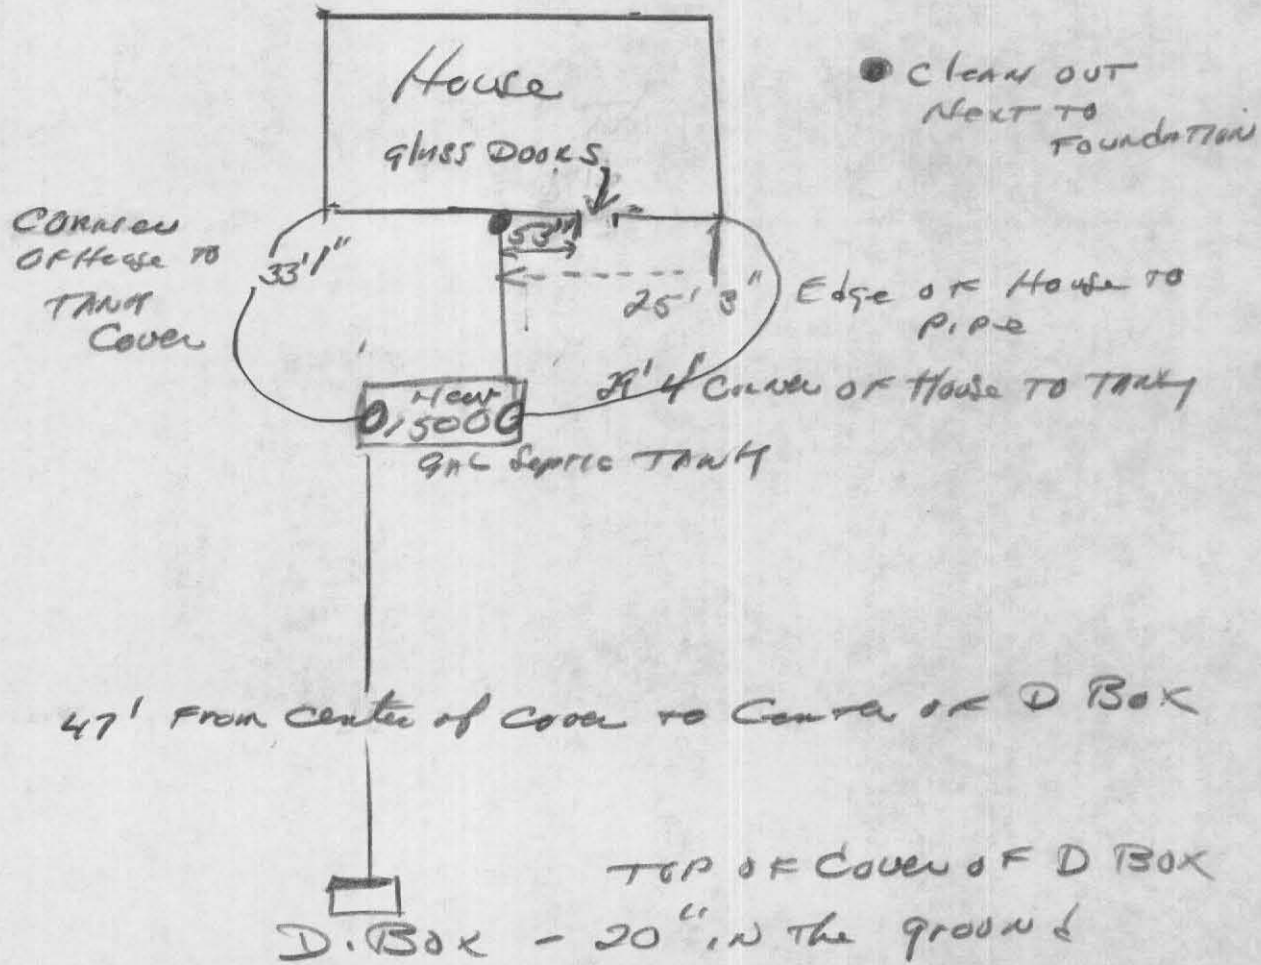 House
glass Doors
Clean out
Next to
Foundation
Corner
of House to
Tank
Cover
33'1"
53"
25' 3"
Edge of House to
pipe
29' 4" Corner of House to Tank
New
1500
gal Septic Tank
47' From Center of Cover to Center of D Box
Top of Cover of D Box
D. Box - 20" in the ground